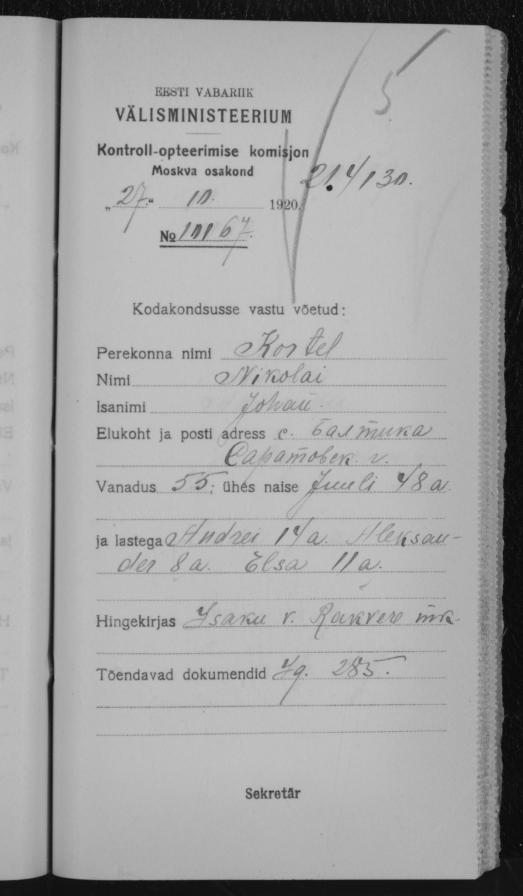 5
EESTI VABARIIK
VÄLISMINISTEERIUM
Kontroll-opteerimise komisjon
Moskva osakond
214/130.
„27.“ 10. 1920.
№ 10167.
Kodakondsusse vastu võetud:
Perekonna nimi Kostel
Nimi Nikolai
Isanimi Johan
Elukoht ja posti adress с. Балтика
Саратовск. г.
Vanadus 55; ühes naise Juuli 48 a.
ja lastega Andrei 14 a. Aleksan-
der 8 a. Elsa 11 a.
Hingekirjas Isaku v. Rakvere mk.
Tõendavad dokumendid 285.
Sekretär